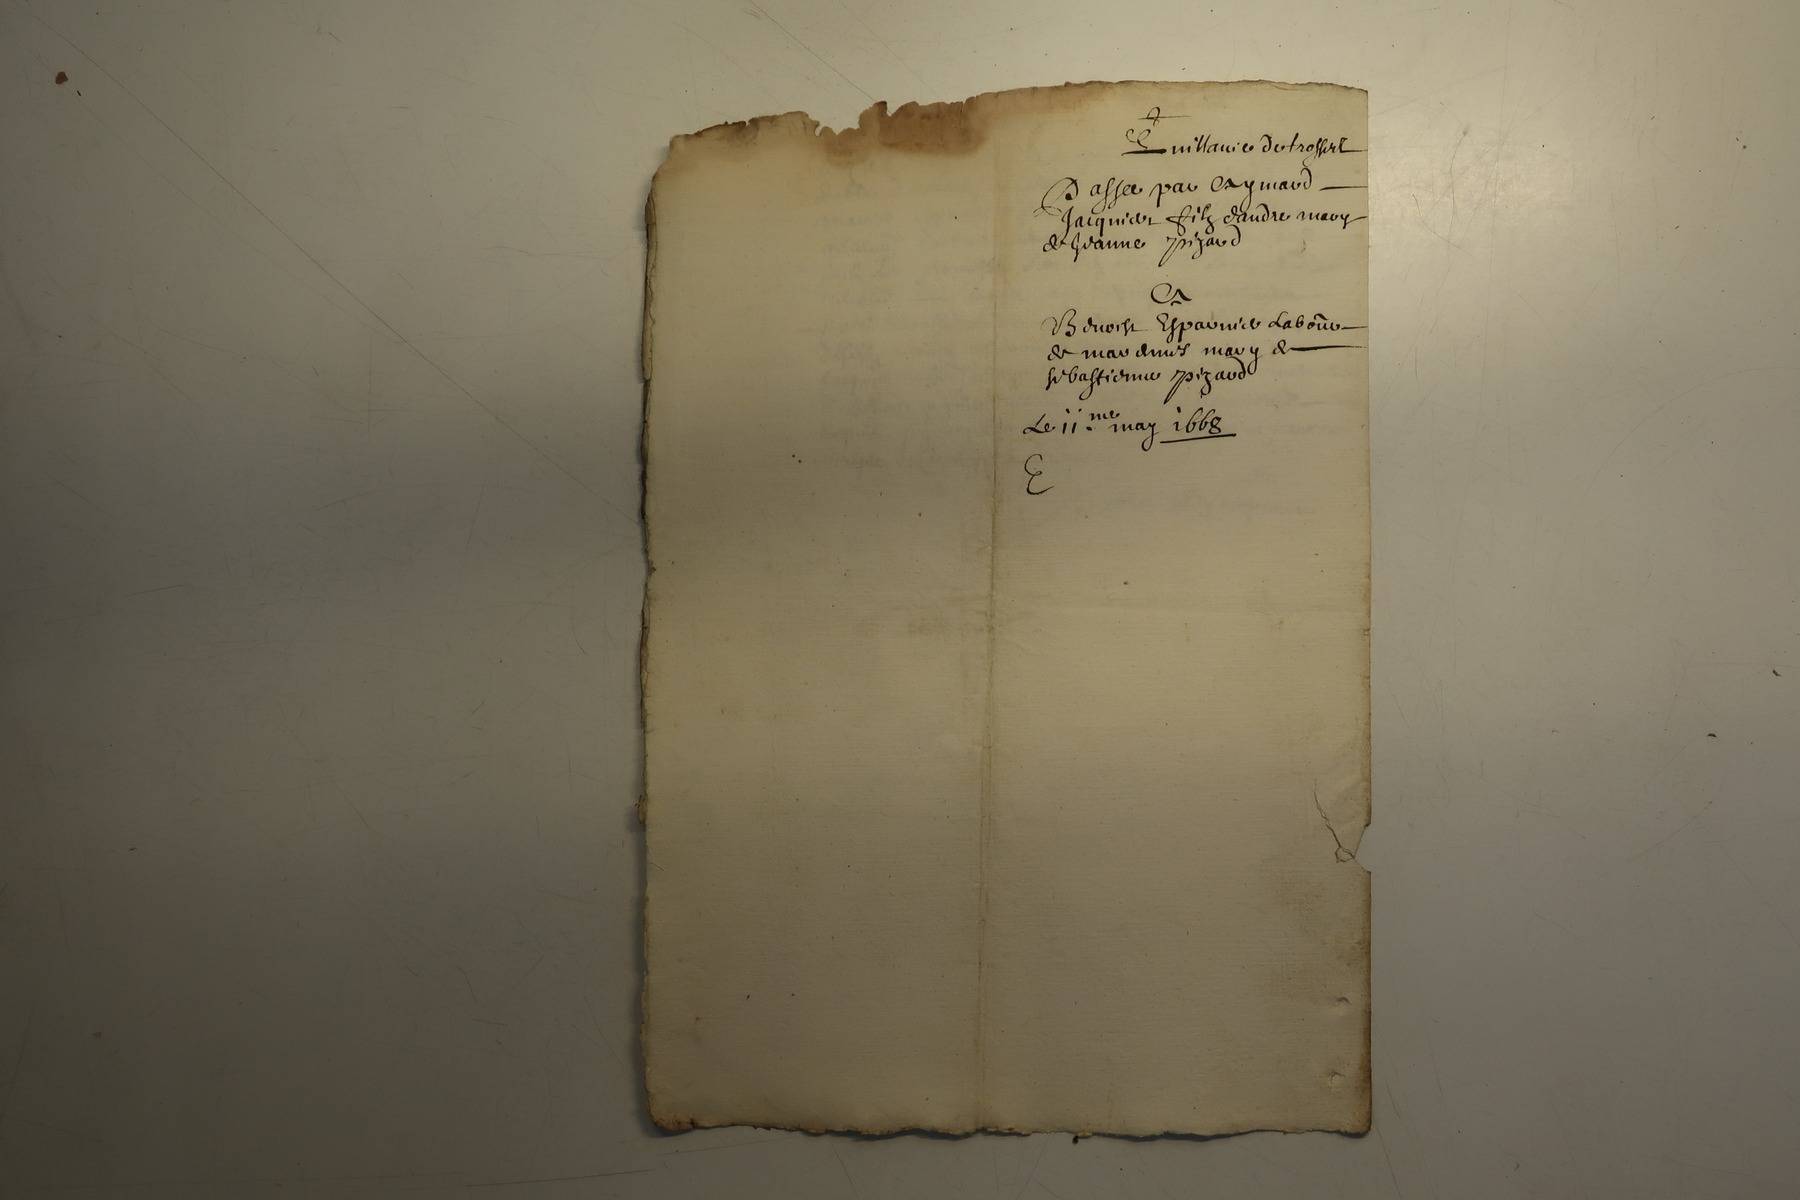 Quittance de trossel
Passee par Aymard
Jacquier filz dandre mary
de Jeanne pizard
A
Benoist Esparuier Labour
de mary de
sebastienne pizard
Le 11.me may 1668